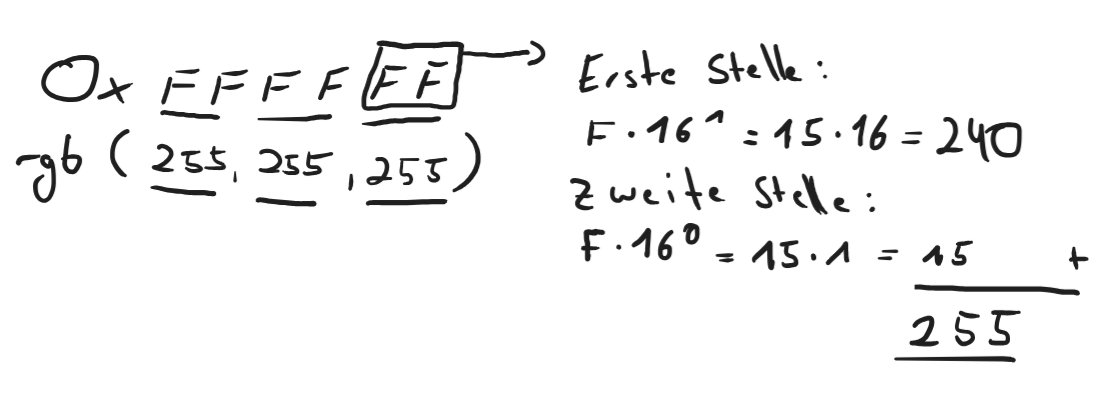 0x FF FF FF
rgb (255, 255, 255)
Erste Stelle:
F · 16¹ = 15 · 16 = 240
Zweite Stelle:
F · 16⁰ = 15 · 1 = 15 +
255